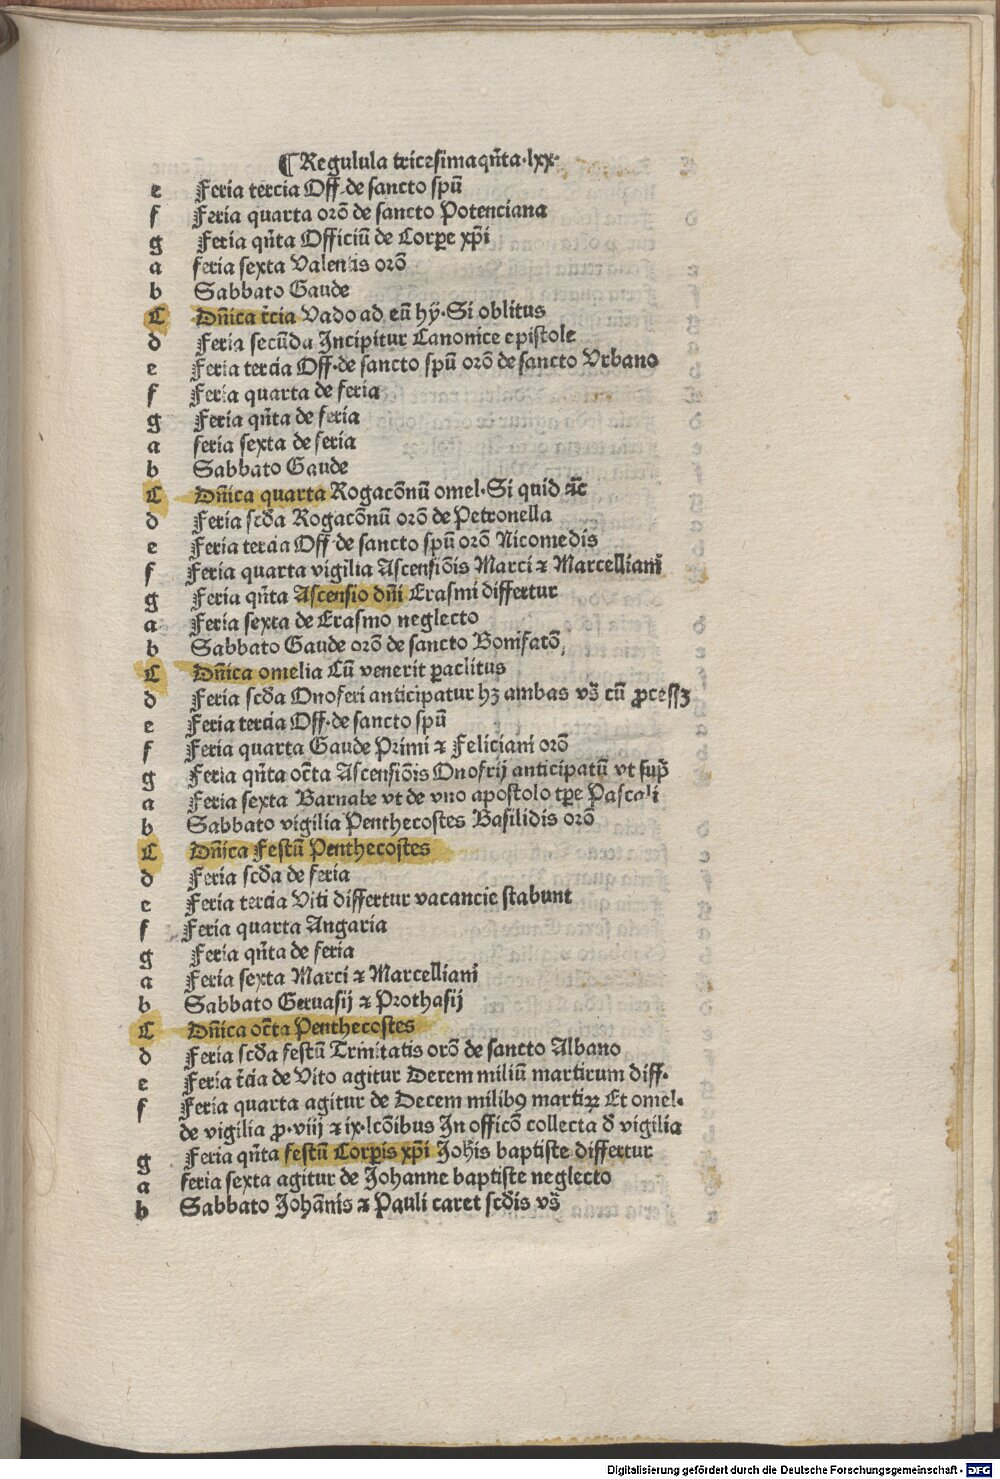 ¶ Regulula tricesimaqn̄ta·lxx·
e Feria tercia Off·de sancto spū
f Feria quarta orō de sancto Potenciana
g Feria qn̄ta Officiū de Corpe xp̄i
a feria sexta Valentis orō
b Sabbato Gaude
C Dn̄ica t̄cia Vado ad eū hẏ·Si oblitus
d Feria secūda Incipitur Canonice epistole
e Feria tercia Off·de sancto spū orō de sancto Vrbano
f Feria quarta de feria
g Feria qn̄ta de feria
a feria sexta de feria
b Sabbato Gaude
C Dn̄ica quarta Rogacōnū omel·Si quid ⁊c̄
d Feria scd̄a Rogacōnū orō de Petronella
e Feria tercia Off·de sancto spū orō Nicomedis
f Feria quarta vigilia Ascensiōis Marci ⁊ Marcelliani
g Feria qn̄ta Ascensio dn̄i Erasmi differtur
a Feria sexta de Erasmo neglecto
b Sabbato Gaude orō de sancto Bonifatō
C Dn̄ica omelia Cū venerit paclitus
d Feria scd̄a Onoferi anticipatur hꝫ ambas vs̄ cū ꝓcessꝫ
e Feria tercia Off·de sancto spū
f Feria quarta Gaude Primi ⁊ Feliciani orō
g Feria qn̄ta oc̄ta Ascensiōis Onofrij anticipatū vt sup̄
a Feria sexta Barnabe vt de vno apostolo tp̄e Pascali
b Sabbato vigilia Penthecostes Basilidis orō
C Dn̄ica Festū Penthecostes
d Feria scd̄a de feria
e Feria tercia Viti differtur vacancie stabunt
f Feria quarta Angaria
g Feria qn̄ta de feria
a Feria sexta Marci ⁊ Marcelliani
b Sabbato Geruasij ⁊ Prothasij
C Dn̄ica oc̄ta Penthecostes
d Feria scd̄a festū Trinitatis orō de sancto Albano
e Feria t̄cia de Vito agitur Decem miliū martirum diff·
f Feria quarta agitur de Decem milibꝰ martiꝝ Et omel·
de vigilia ꝓ·viij ⁊ ix·lcōibus In officō collecta d̄ vigilia
g Feria qn̄ta festū Corpis xp̄i Joh̄is baptiste differtur
a feria sexta agitur de Johanne baptiste neglecto
b Sabbato Johānis ⁊ Pauli caret scd̄is vs̄
Digitalisierung gefördert durch die Deutsche Forschungsgemeinschaft - DFG